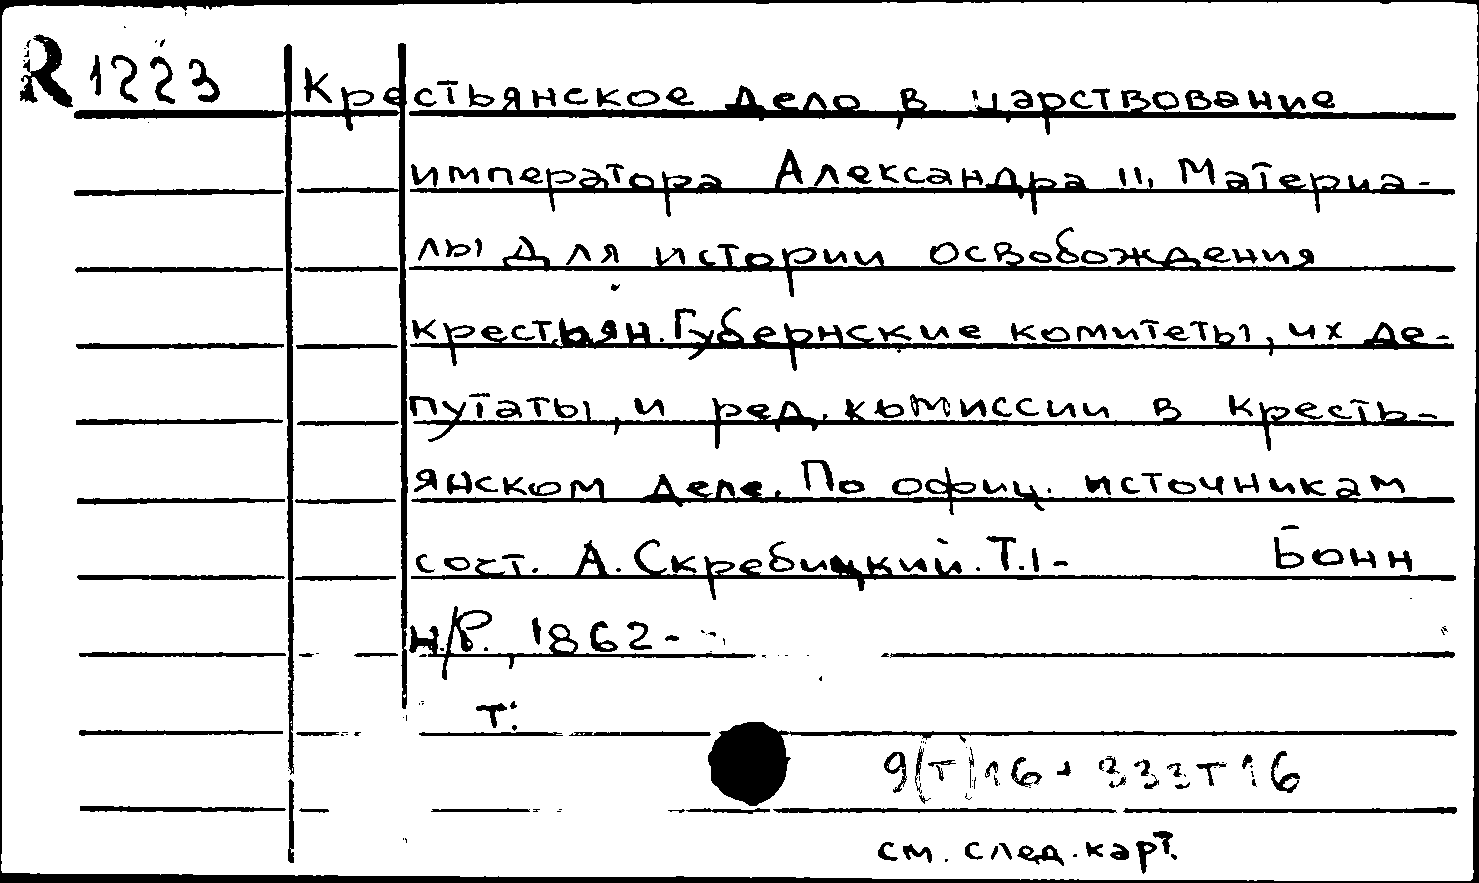 R 1223 Крестьянское дело в царствование
императора Александра II. Материа-
лы для истории освобождения
крестьян. Губернские комитеты, их де-
путаты, и ред. комиссии в кресть-
янском деле. По офиц. источникам
сост. А. Скребицкий. Т.1- Бонн
н/Р., 1862-
т.
9(т)16 + 333т16
см. след. карт.